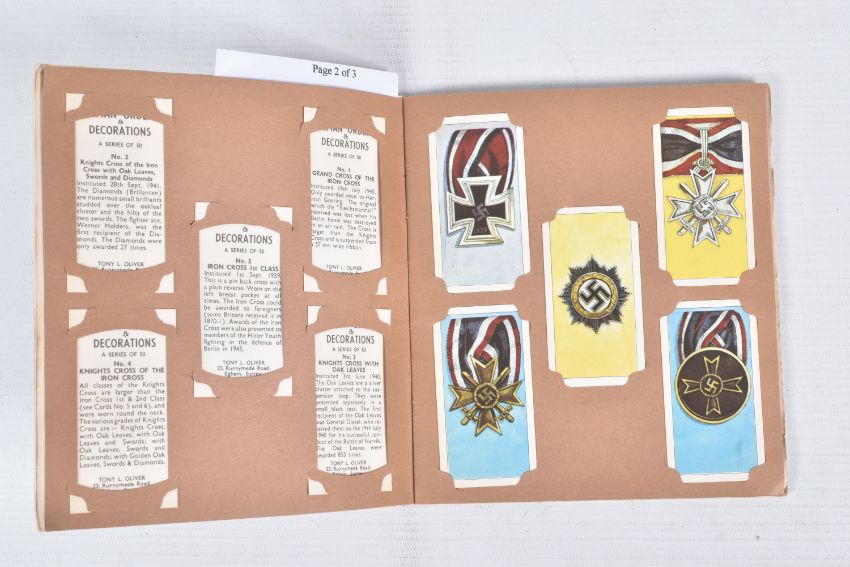 Page 2 of 3
& 
DECORATIONS
A SERIES OF 50
No. 2
Knights Cross of the Iron
Cross with Oak Leaves,
Swords and Diamonds
Instituted 28th Sept. 1941.
The Diamonds (Brillanten)
are numerous small brilliants
studded over the oakleaf
cluster and the hilts of the
two swords. The fighter ace,
Werner Molders, was the
first recipient of the Dia-
monds. The Diamonds were
only awarded 27 times.
TONY L. OLIVER
& 
DECORATIONS
A SERIES OF 50
No. 1
GRAND CROSS OF THE
IRON CROSS
Instituted 19th July 1940.
Only awarded once, to Her-
man Goering. The original
which the "Reichsmarshal"
received was lost when his
Berlin home was destroyed
in an air raid. The Cross is
larger than the Knights
Cross and is suspended from
a 57 mm wide ribbon.
TONY L. OLIVER
DECORATIONS
A SERIES OF 50
No. 5
IRON CROSS 1st CLASS
Instituted 1st Sept. 1939.
This is a pin back cross with
a plain reverse. Worn on the
left breast pocket at all
times. The Iron Cross could
be awarded to foreigners
(some Britons received it in
1870-1). Awards of the Iron
Cross were also presented to
members of the Hitler Youth
fighting in the defence of
Berlin in 1945.
TONY L. OLIVER
23, Runnymede Road
Egham, Surrey
&
DECORATIONS
A SERIES OF 50
No. 4
KNIGHTS CROSS OF THE
IRON CROSS
All classes of the Knights
Cross are larger than the
Iron Cross 1st & 2nd Class
(see Cards No. 5 and 6), and
were worn round the neck.
The various grades of Knights
Cross are :- Knights Cross,
with Oak Leaves; with Oak
Leaves and Swords; with
Oak Leaves, Swords and
Diamonds; with Golden Oak
Leaves, Swords & Diamonds.
TONY L. OLIVER
23, Runnymede Road
&
DECORATIONS
A SERIES OF 50
No. 3
KNIGHTS CROSS WITH
OAK LEAVES
Instituted 3rd June 1940.
The Oak Leaves are a silver
cluster attached to the sus-
pension loop. They were
presented separately in a
small black case. The first
recipient of the Oak Leaves
was General Dietel, who re-
ceived them on the 19th July
1940 for his successful con-
duct of the Battle of Narvik.
The Oak Leaves were
awarded 853 times.
TONY L. OLIVER
23, Runnymede Road
1939